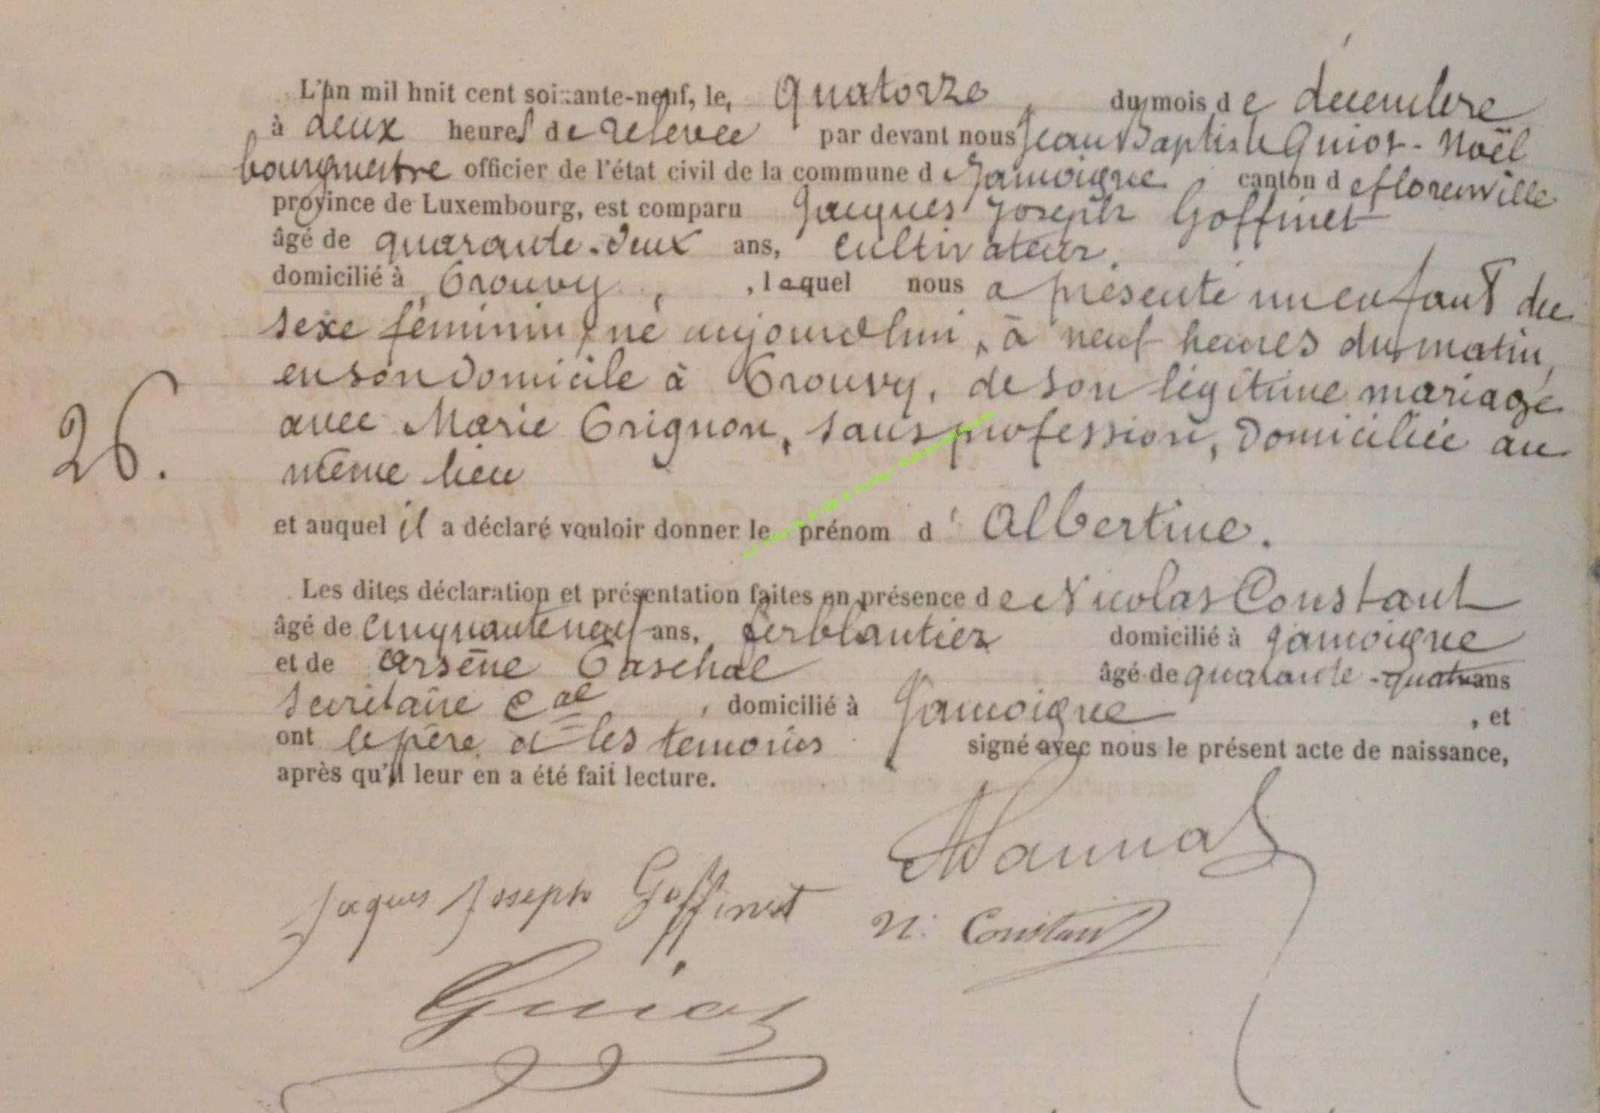 L'an mil huit cent soixante-neuf, le, quatorze du mois de décembre
à deux heures de relevée par devant nous Jean Baptiste Guiot-Noël
bourgmestre officier de l'état civil de la commune de Jamoigne, canton de florenville
province de Luxembourg, est comparu Jacques Joseph Goffinet
âgé de quarante-deux ans, cultivateur,
domicilié à Prouvy, , laquel nous a présenté un enfant du
sexe féminin, né aujourdhui, à neuf heures du matin,
en son domicile à Prouvy, de son légitime mariage
avec Marie Grignon, sans profession, domiciliée au
même lieu
26.
et auquel il a déclaré vouloir donner le prénom d'Albertine.
Les dites déclaration et présentation faites en présence de Nicolas Constant
âgé de cinquante neuf ans, ferblantier domicilié à Jamoigne
et de Arsène âgé de quarante-quatre ans
secrétaire cal , domicilié à Jamoigne , et
ont le père et les temoins signé avec nous le présent acte de naissance,
après qu'il leur en a été fait lecture.
Jaques Joseph Goffinet
N. Constant
Guiot